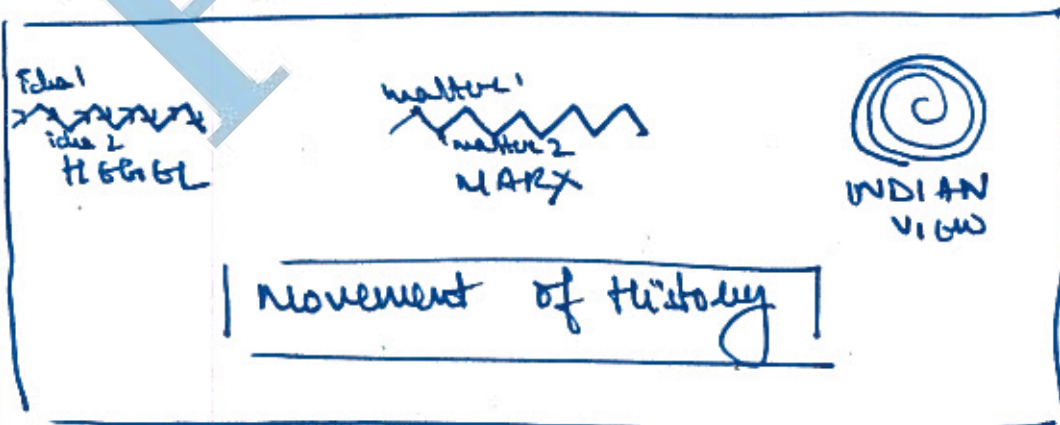 Idea 1
idea 2
HEGEL
matter 1
matter 2
MARX
INDIAN
VIEW
Movement of History